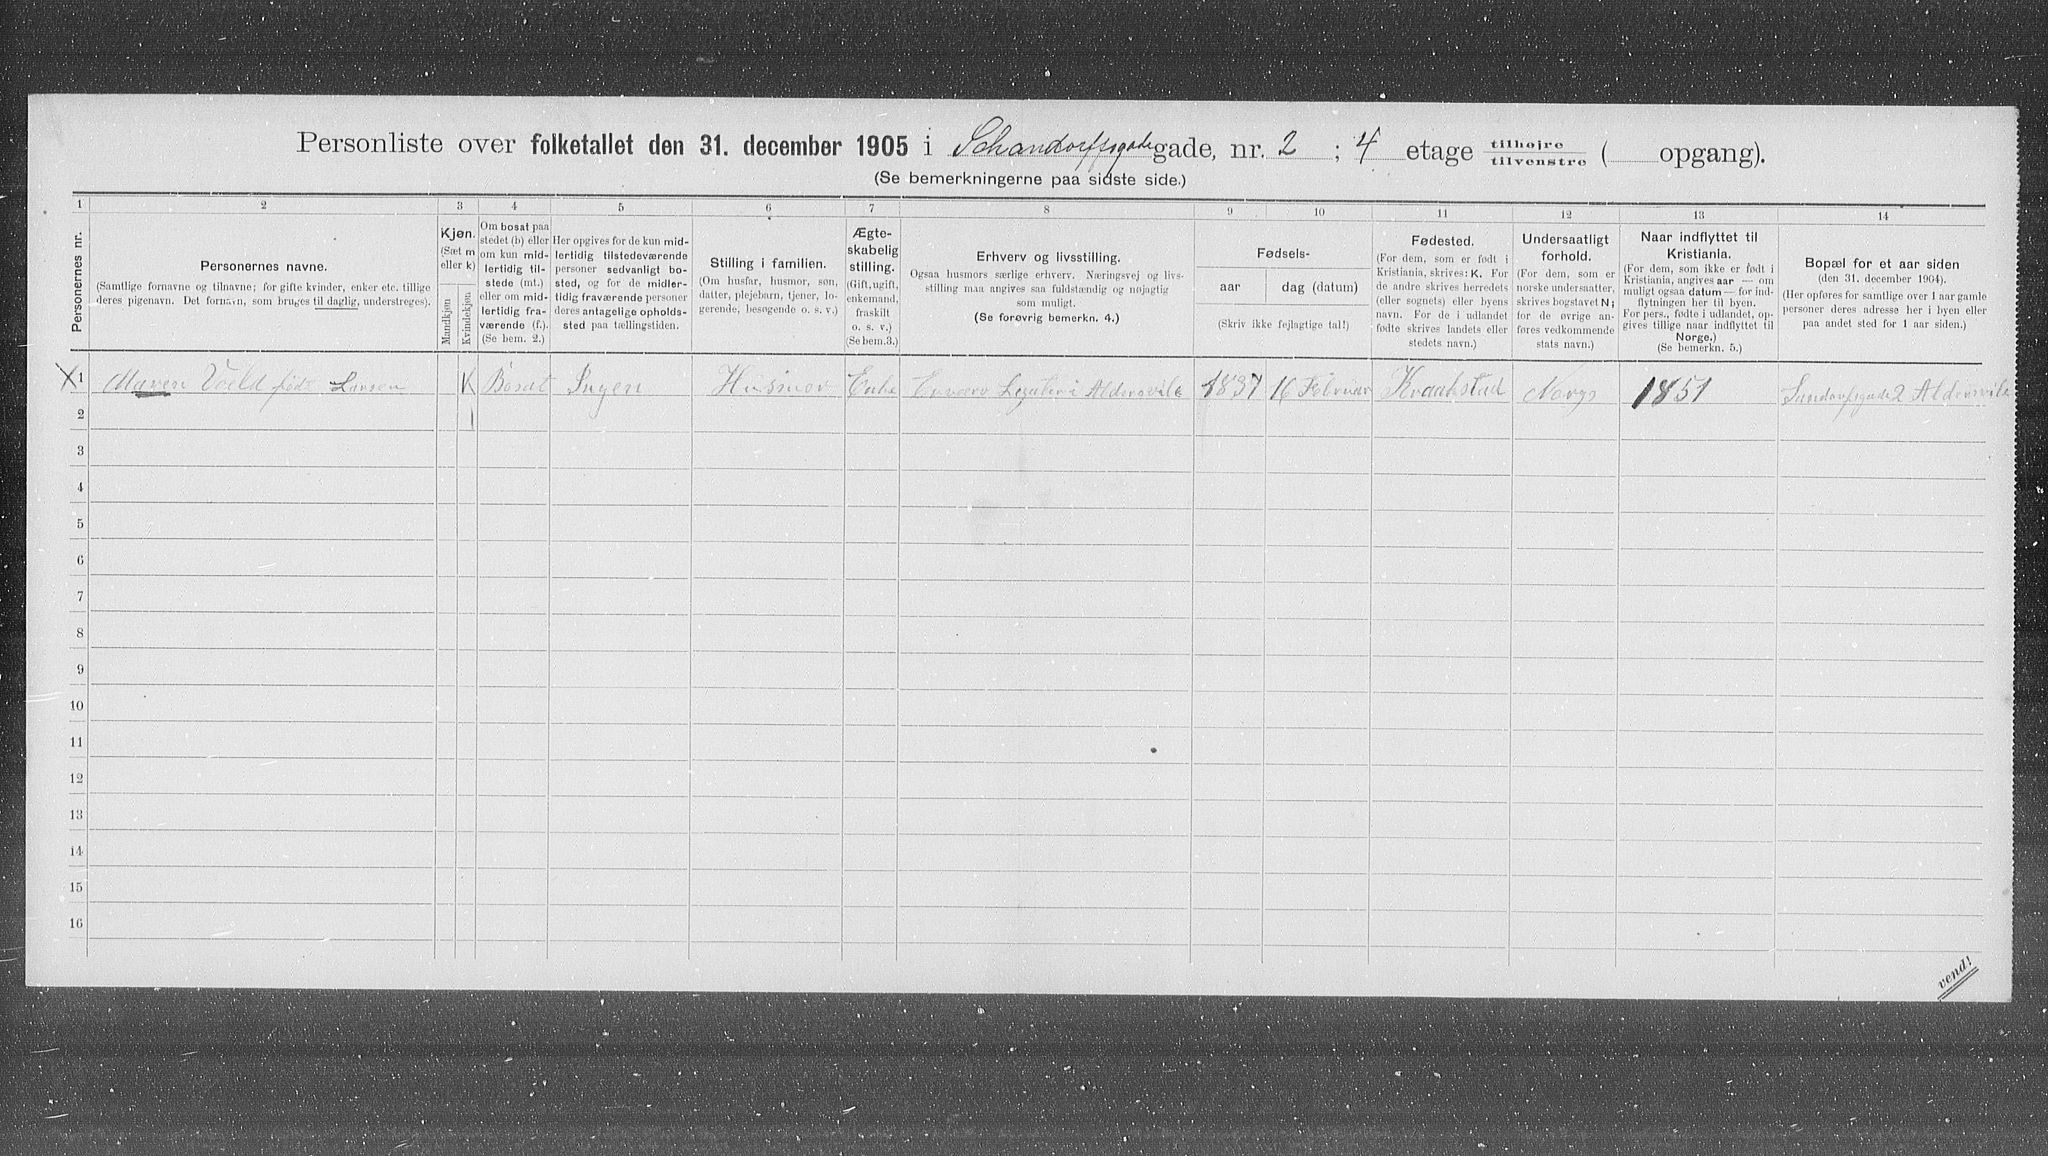 Personliste over folketallet den 31. december 1905 i Schandorffsgade gade, nr. 2 ; 4 etage tilhøjre tilvenstre ( opgang).
(Se bemerkningerne paa sidste side.)
1 2 3 4 5 6 7 8 9 10 11 12 13 14
Personernes nr.
Personernes navne.
(Samtlige fornavne og tilnavne; for gifte kvinder, enker etc. tillige
deres pigenavn. Det fornavn, som bruges til daglig, understreges).
Kjøn.
(Sæt m
eller k)
Mandkjøn
Kvindekjøn
Om bosat paa
stedet (b) eller
om kun mid-
lertidig til-
stede (mt.)
eller om mid-
lertidig fra-
værende (f.).
(Se bem. 2.)
Her opgives for de kun mid-
lertidig tilstedeværende
personer sedvanlig bo-
sted, og for de midler-
tidig fraværende personer
deres antagelige opholds-
sted paa tællingstiden.
Stilling i familien.
(Om husfar, husmor, søn,
datter, plejebarn, tjener, lo-
gerende, besøgende o. s. v.)
Ægte-
skabelig
stilling.
(Gift, ugift,
enkemand,
fraskilt
o. s. v.)
(Se bem. 3.)
Erhverv og livsstilling.
Ogsaa husmors særlige erhverv. Næringsvej og livs-
stilling maa angives saa fuldstændig og nøjagtig
som muligt.
(Se forøvrig bemerkn. 4.)
Fødsels-
aar
dag (datum)
(Skriv ikke fejlagtige tal!)
Fødested.
(For dem, som er født i
Kristiania, skrives: K. For
de andre skrives herredets
(eller sognets) eller byens
navn. For de i udlandet
fødte skrives landets eller
stedets navn.)
Undersaatligt
forhold.
(For dem, som er
norske undersaatter,
skrives bogstavet N;
for de øvrige an-
føres vedkommende
stats navn.)
Naar indflyttet til
Kristiania.
(For dem, som ikke er født i
Kristiania, angives aar — om
muligt ogsaa datum — for ind-
flytningen her til byen.
For pers., født i udlandet, op-
gives tillige naar indflyttet til
Norge.)
(Se bemerkn. 5.)
Bopæl for et aar siden
(den 31. december 1904).
(Her opføres for samtlige over 1 aar gamle
personer deres adresse her i byen eller
paa andet sted for 1 aar siden.)
X 1 Maren Voeld født Larsen K Bosat Ingen Husmor Enke Aldersvile 1837 16 Februar Kraakstad Norge 1851 Sandorfsgade 2 Aldersvile
2
3
4
5
6
7
8
9
10
11
12
13
14
15
16
vend!